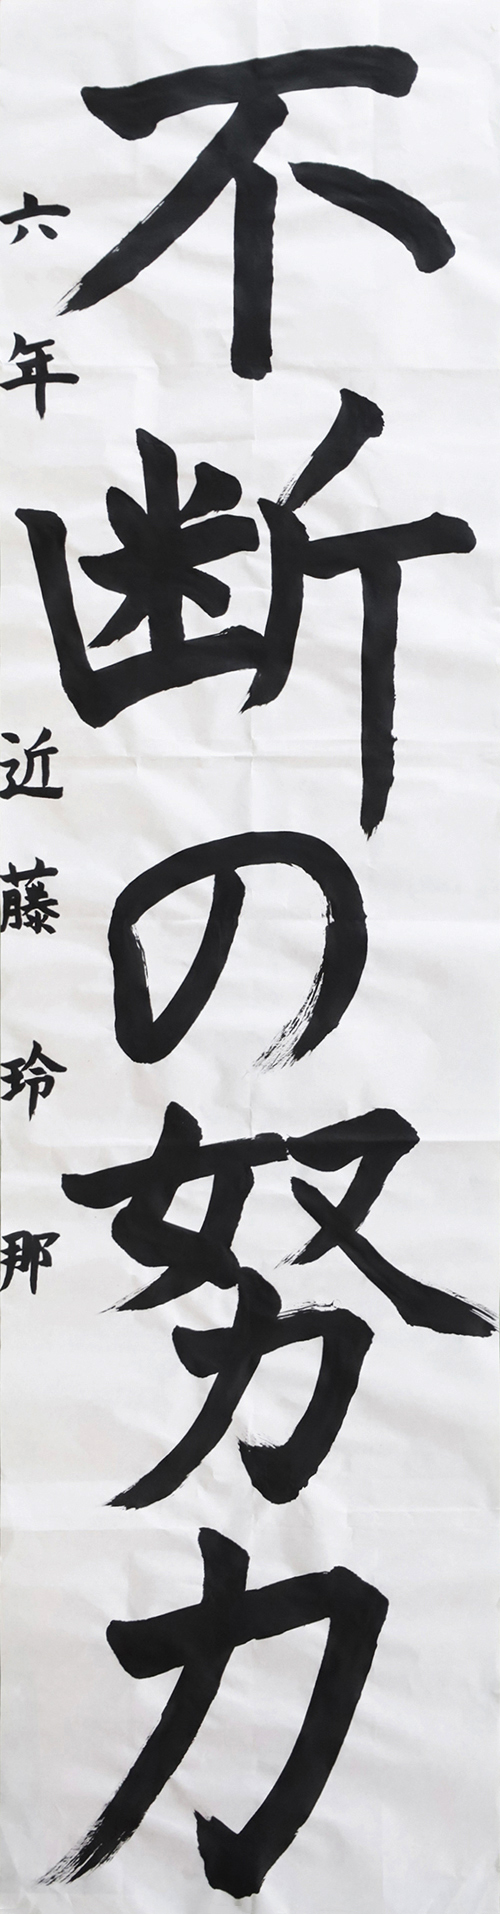 不断の努力
六年 近藤玲那